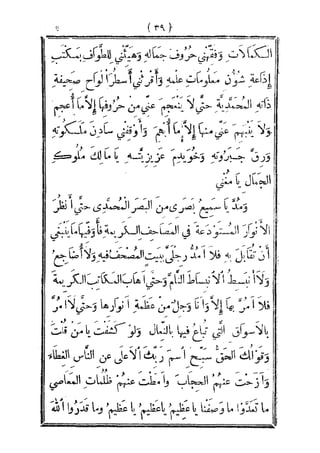 ( ٣٩ )
الكمالات وفقهني حروف جماله وهيئني للطواف بمكتب
إذاعة شؤن معلومات علمه وأقرئني أسطر ألواح صحيفة
ذاته المحمدية حتى لا ينعجم عني من حروفها إلا ما أعجم
ولا ينبهم عني منها إلا ما أبهم وأوقفني سادن ملكوته
ورق جبروته وخويدم عزيزيته يا مالك ملوك
الجمال يا مغني
ومد يا سميع بصري من البصر المحمدي حتى أنظر
الأنوار المستودعة في المصاحف الكريمة فأوقيها ما ينبغي
أن تقابل به فلا أمد رجلي ببيت المصحف فيه ولا أضاجع
ولا أنبسط الانبساط التام وحتى أهاب المكاتب الكريمة
فلا أمر بها إلا وأنا وجل من عظمة أنوارها وحتى لا أمر
بالأسواق التي تباع فيها بالنعال ولو كشفت يا من قلت
وقولك الحق سبح اسم ربك الأعلى عن الناس الغطاء
وأزحت عنهم الحجاب وأمطت عنهم ظلمات المعاصي
ما تعدوا ما وصفنا يا عظيم يا عظيم يا عظيم وما قدروا الله